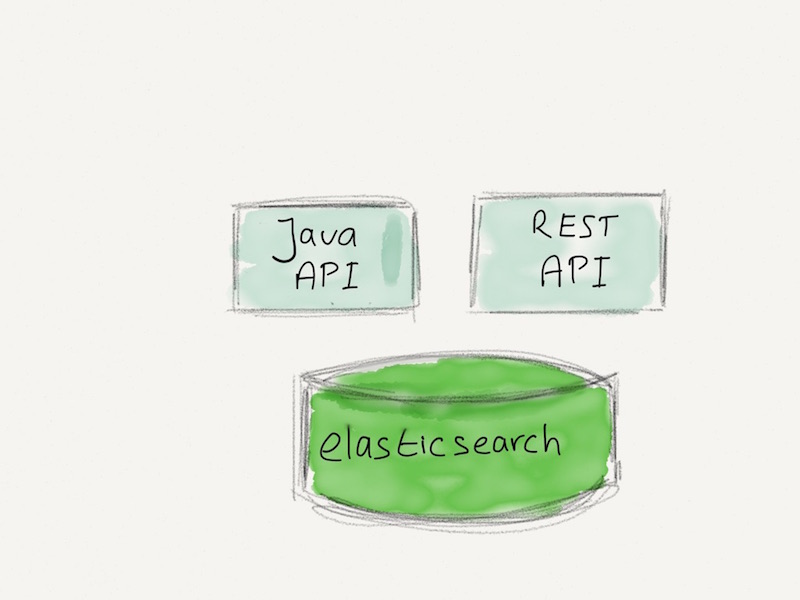 Java
API
REST
API
elasticsearch